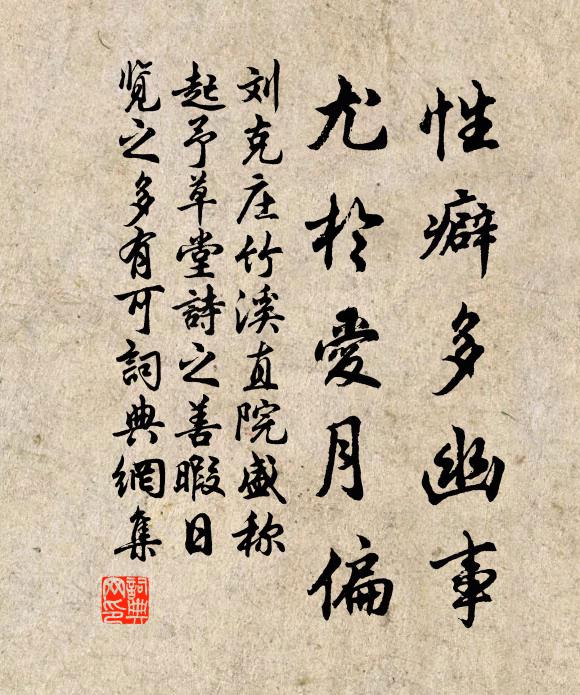 性癖多幽事
尤於愛月偏
刘克庄竹溪直院盛称
起予草堂詩之善暇日
覽之多有可詞典網集
詞典
网印